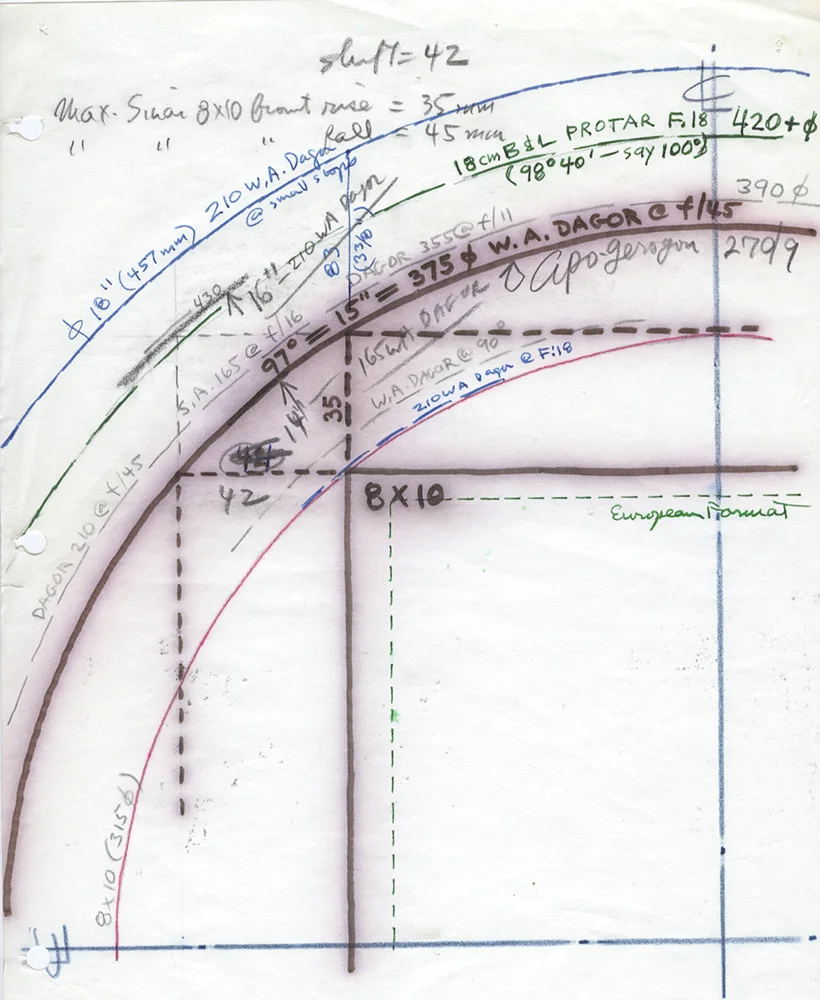 shift = 42
Max. Sinar 8x10 front rise = 35 mm
" " " fall = 45 mm
℄
18cm B&L PROTAR F.18
(98°40' – say 100°)
420+ϕ
ϕ 18" (457mm) 210 W.A. Dagor
@ small stops
390ϕ
16" – 210 WA Dagor
DAGOR 355 @ f/11
97° = 15" = 375ϕ W.A. DAGOR @ f/45
Apo-gerogon 270/9
430
S.A. 165 @ f/16
165 WA DAGOR
W.A. DAGOR @ 90°
210 WA Dagor @ F:18
14"
35
42
8X10
European Format
DAGOR 210 @ f/45
8x10 (315ϕ)
℄